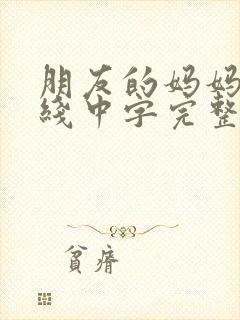 朋友的妈妈
綫中字完整
貧瘠